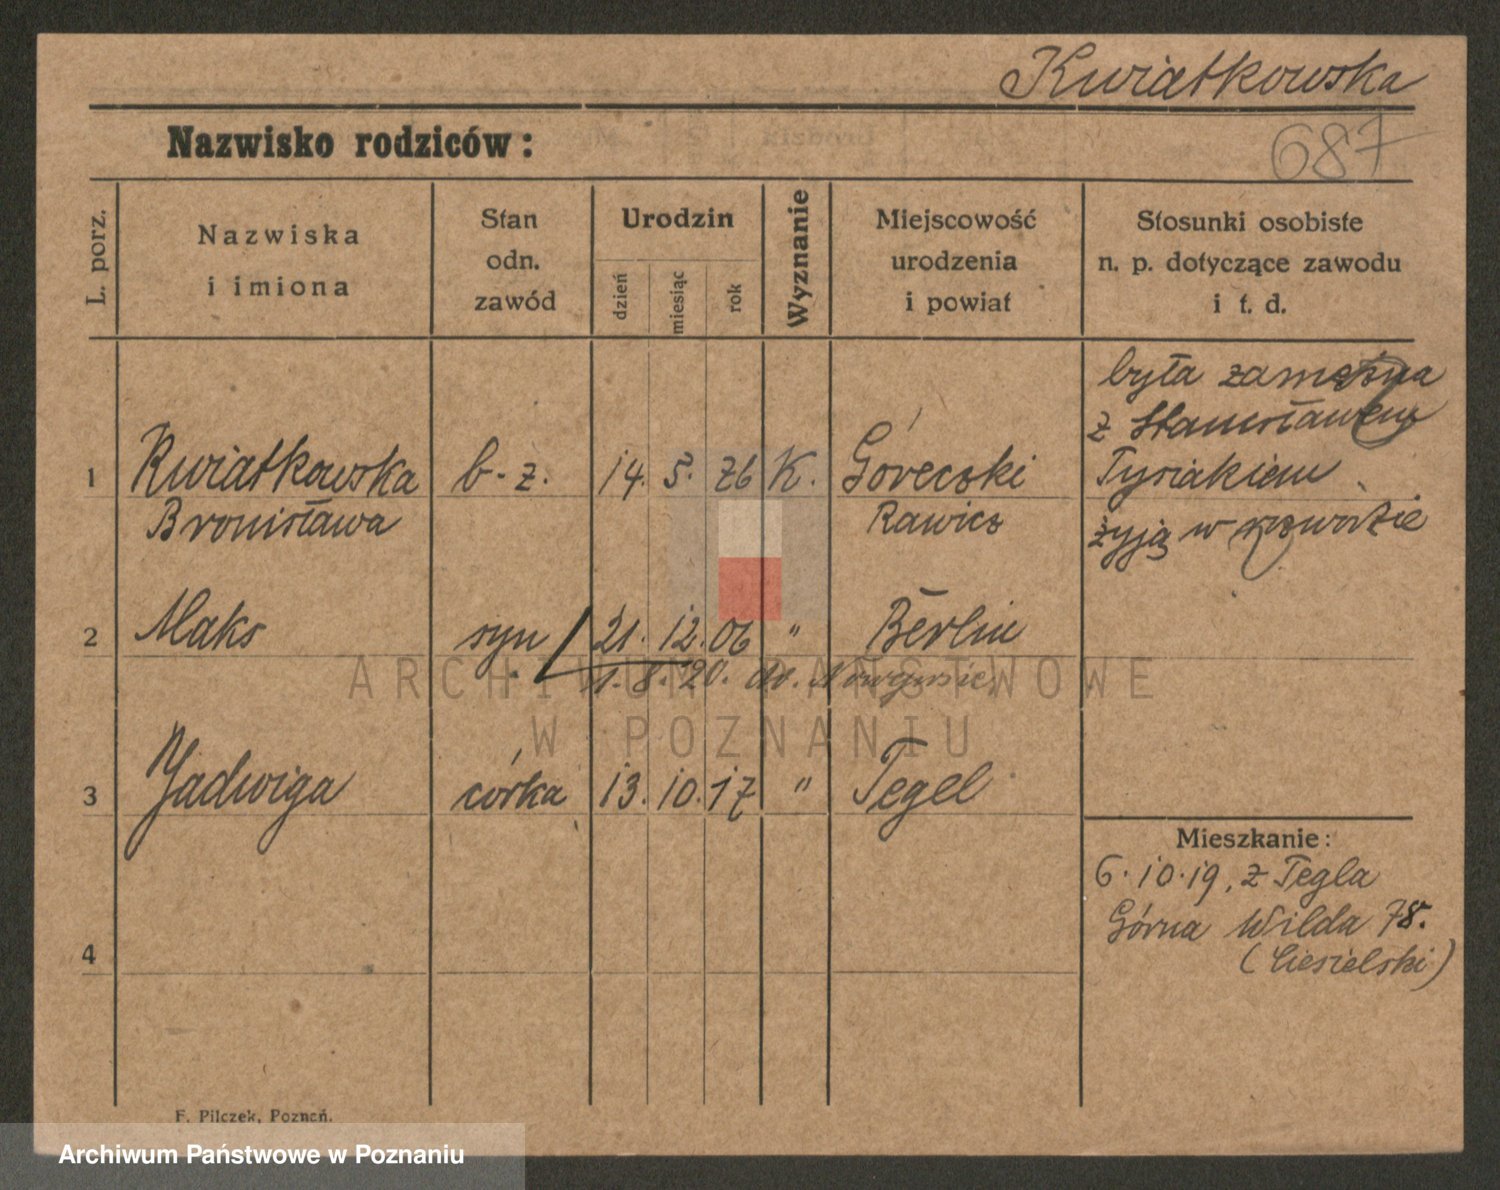 Kwiatkowska
Nazwisko rodziców:
687
L. porz.
Nazwiska
i imiona
Stan
odn.
zawód
Urodzin
dzień
miesiąc
rok
Wyznanie
Miejscowość
urodzenia
i powiat
Stosunki osobiste
n. p. dotyczące zawodu
i t. d.
była zamężna
z Stanisławem
1 Kwiatkowska b-z. 14. 5. K. Górecski Tysiakiem
Bronisława Rawics żyją w rozwodzie
2 Maks syn 21. 12. 06 " Berlin
1. 8. 20. do
3 Jadwiga córka 13. 10. 17 " Tegel
Mieszkanie:
6.10.19, z Tegla
Górna Wilda 78.
4 (Ciesielski)
F. Pilczek, Poznań.
ARCHIWUM PAŃSTWOWE
W POZNANIU
Archiwum Państwowe w Poznaniu